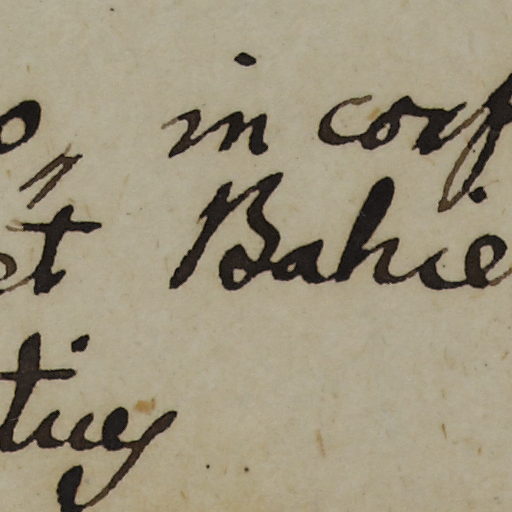 o, in corp
et Bahie
tuej